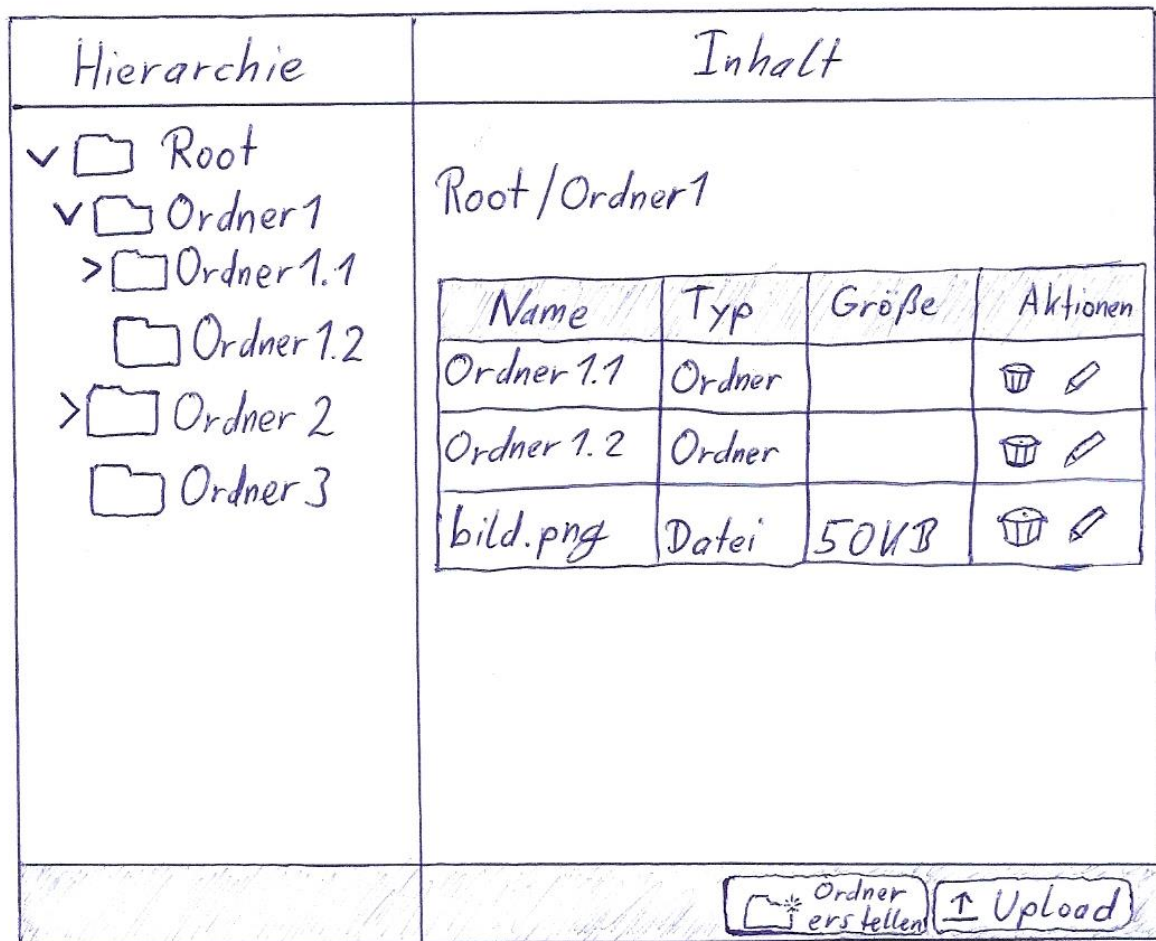 Hierarchie
Inhalt
Root
Ordner1
Ordner1.1
Ordner1.2
Ordner 2
Ordner 3
Root/Ordner1
Name Typ Größe Aktionen
Ordner 1.1 Ordner
Ordner 1.2 Ordner
bild.png Datei 50KB
Ordner
erstellen
Upload